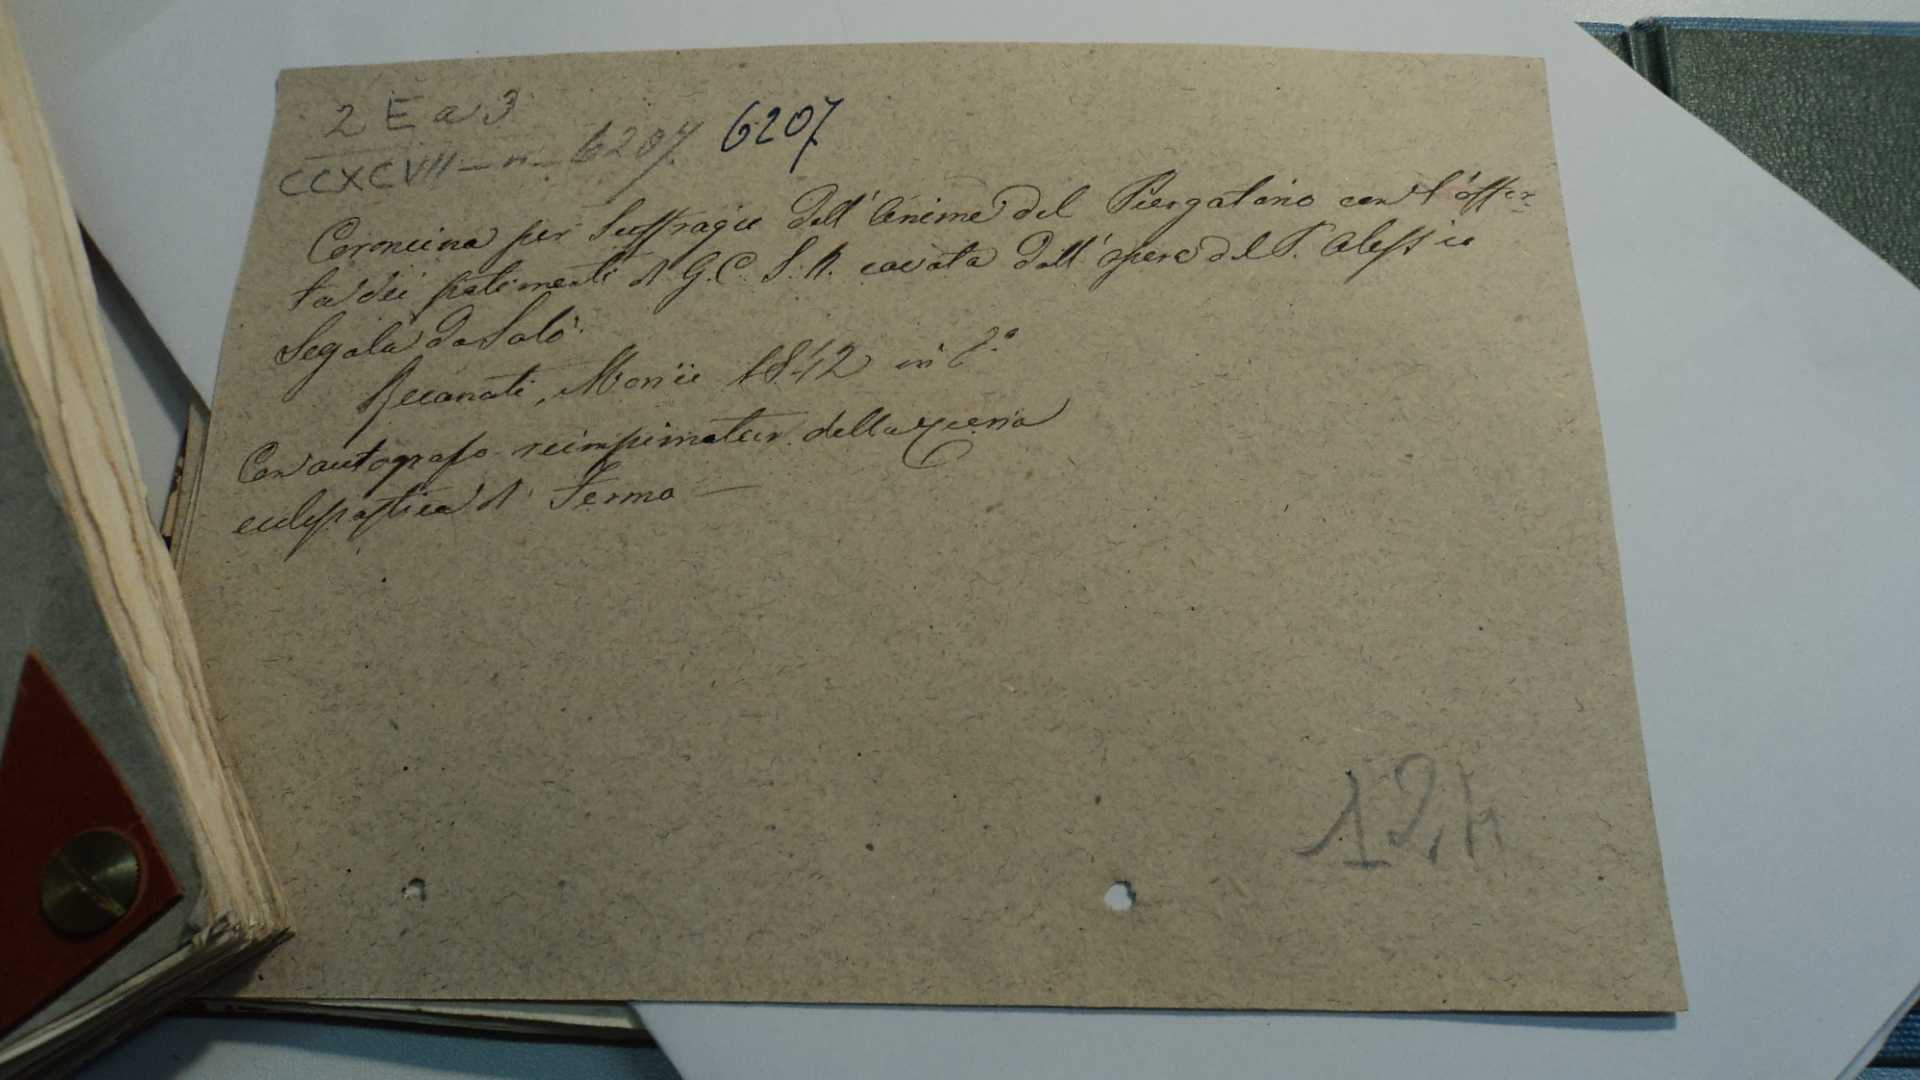 2 E a 3
CCXCVII – n – 6207 6207
Coroncina per suffragio dell'Anime del Piergatorio con l'offer-
ta dei patimenti di G. C. S. N. cavata dall'opere del P. Alessio
Segala da Salò.
Recanati, Morici 1842 in 8.°
Con autografo reimprimatur della curia
ecclesiastica di Fermo —
12,